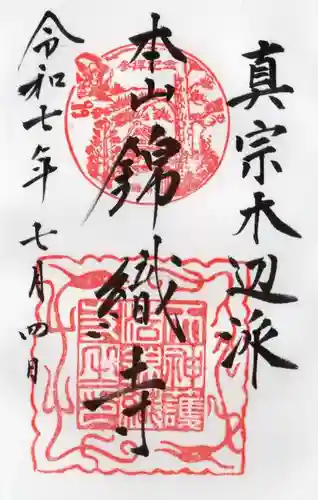 真宗木辺派
本山錦織寺
令和七年七月四日